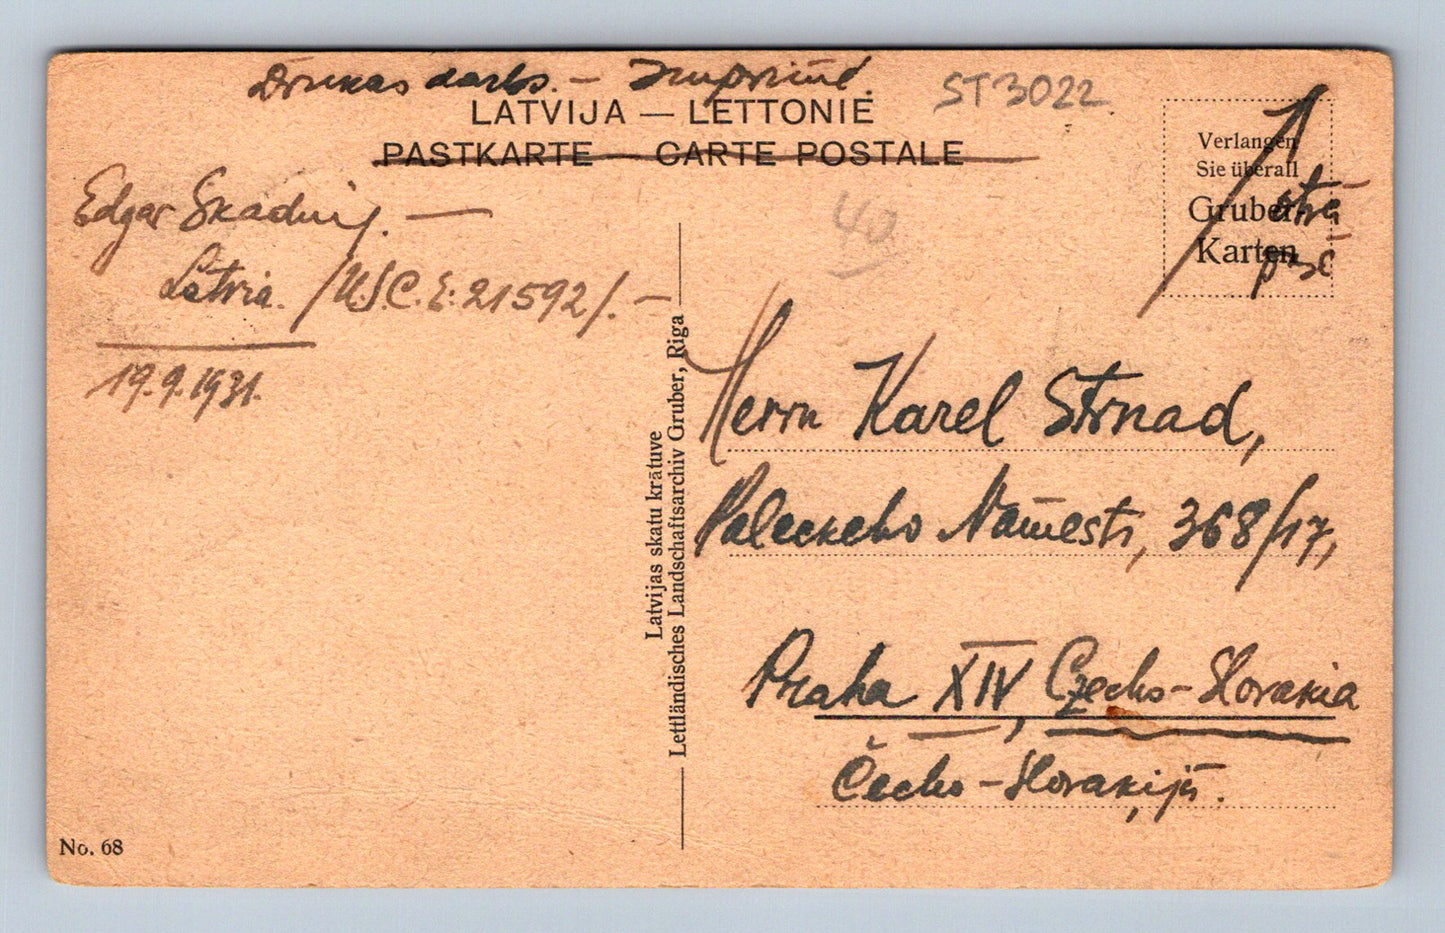 Drukas darbs. – Imprimé.
ST3022
LATVIJA — LETTONIE
PASTKARTE — CARTE POSTALE
Verlangen
Sie überall
Gruber
Karten
otrā
pusē
40
Edgar
Latvia. /U.S.C.E. 21592/. —
19.9.1931.
Latvijas skatu krātuve
Lettländisches Landschaftsarchiv Gruber, Riga
Herrn Karel Strnad,
Paleckeho Námesti, 368/17,
Praha XIV, Czecho-Slovakia
Čecho-Slovaķijā.
No. 68